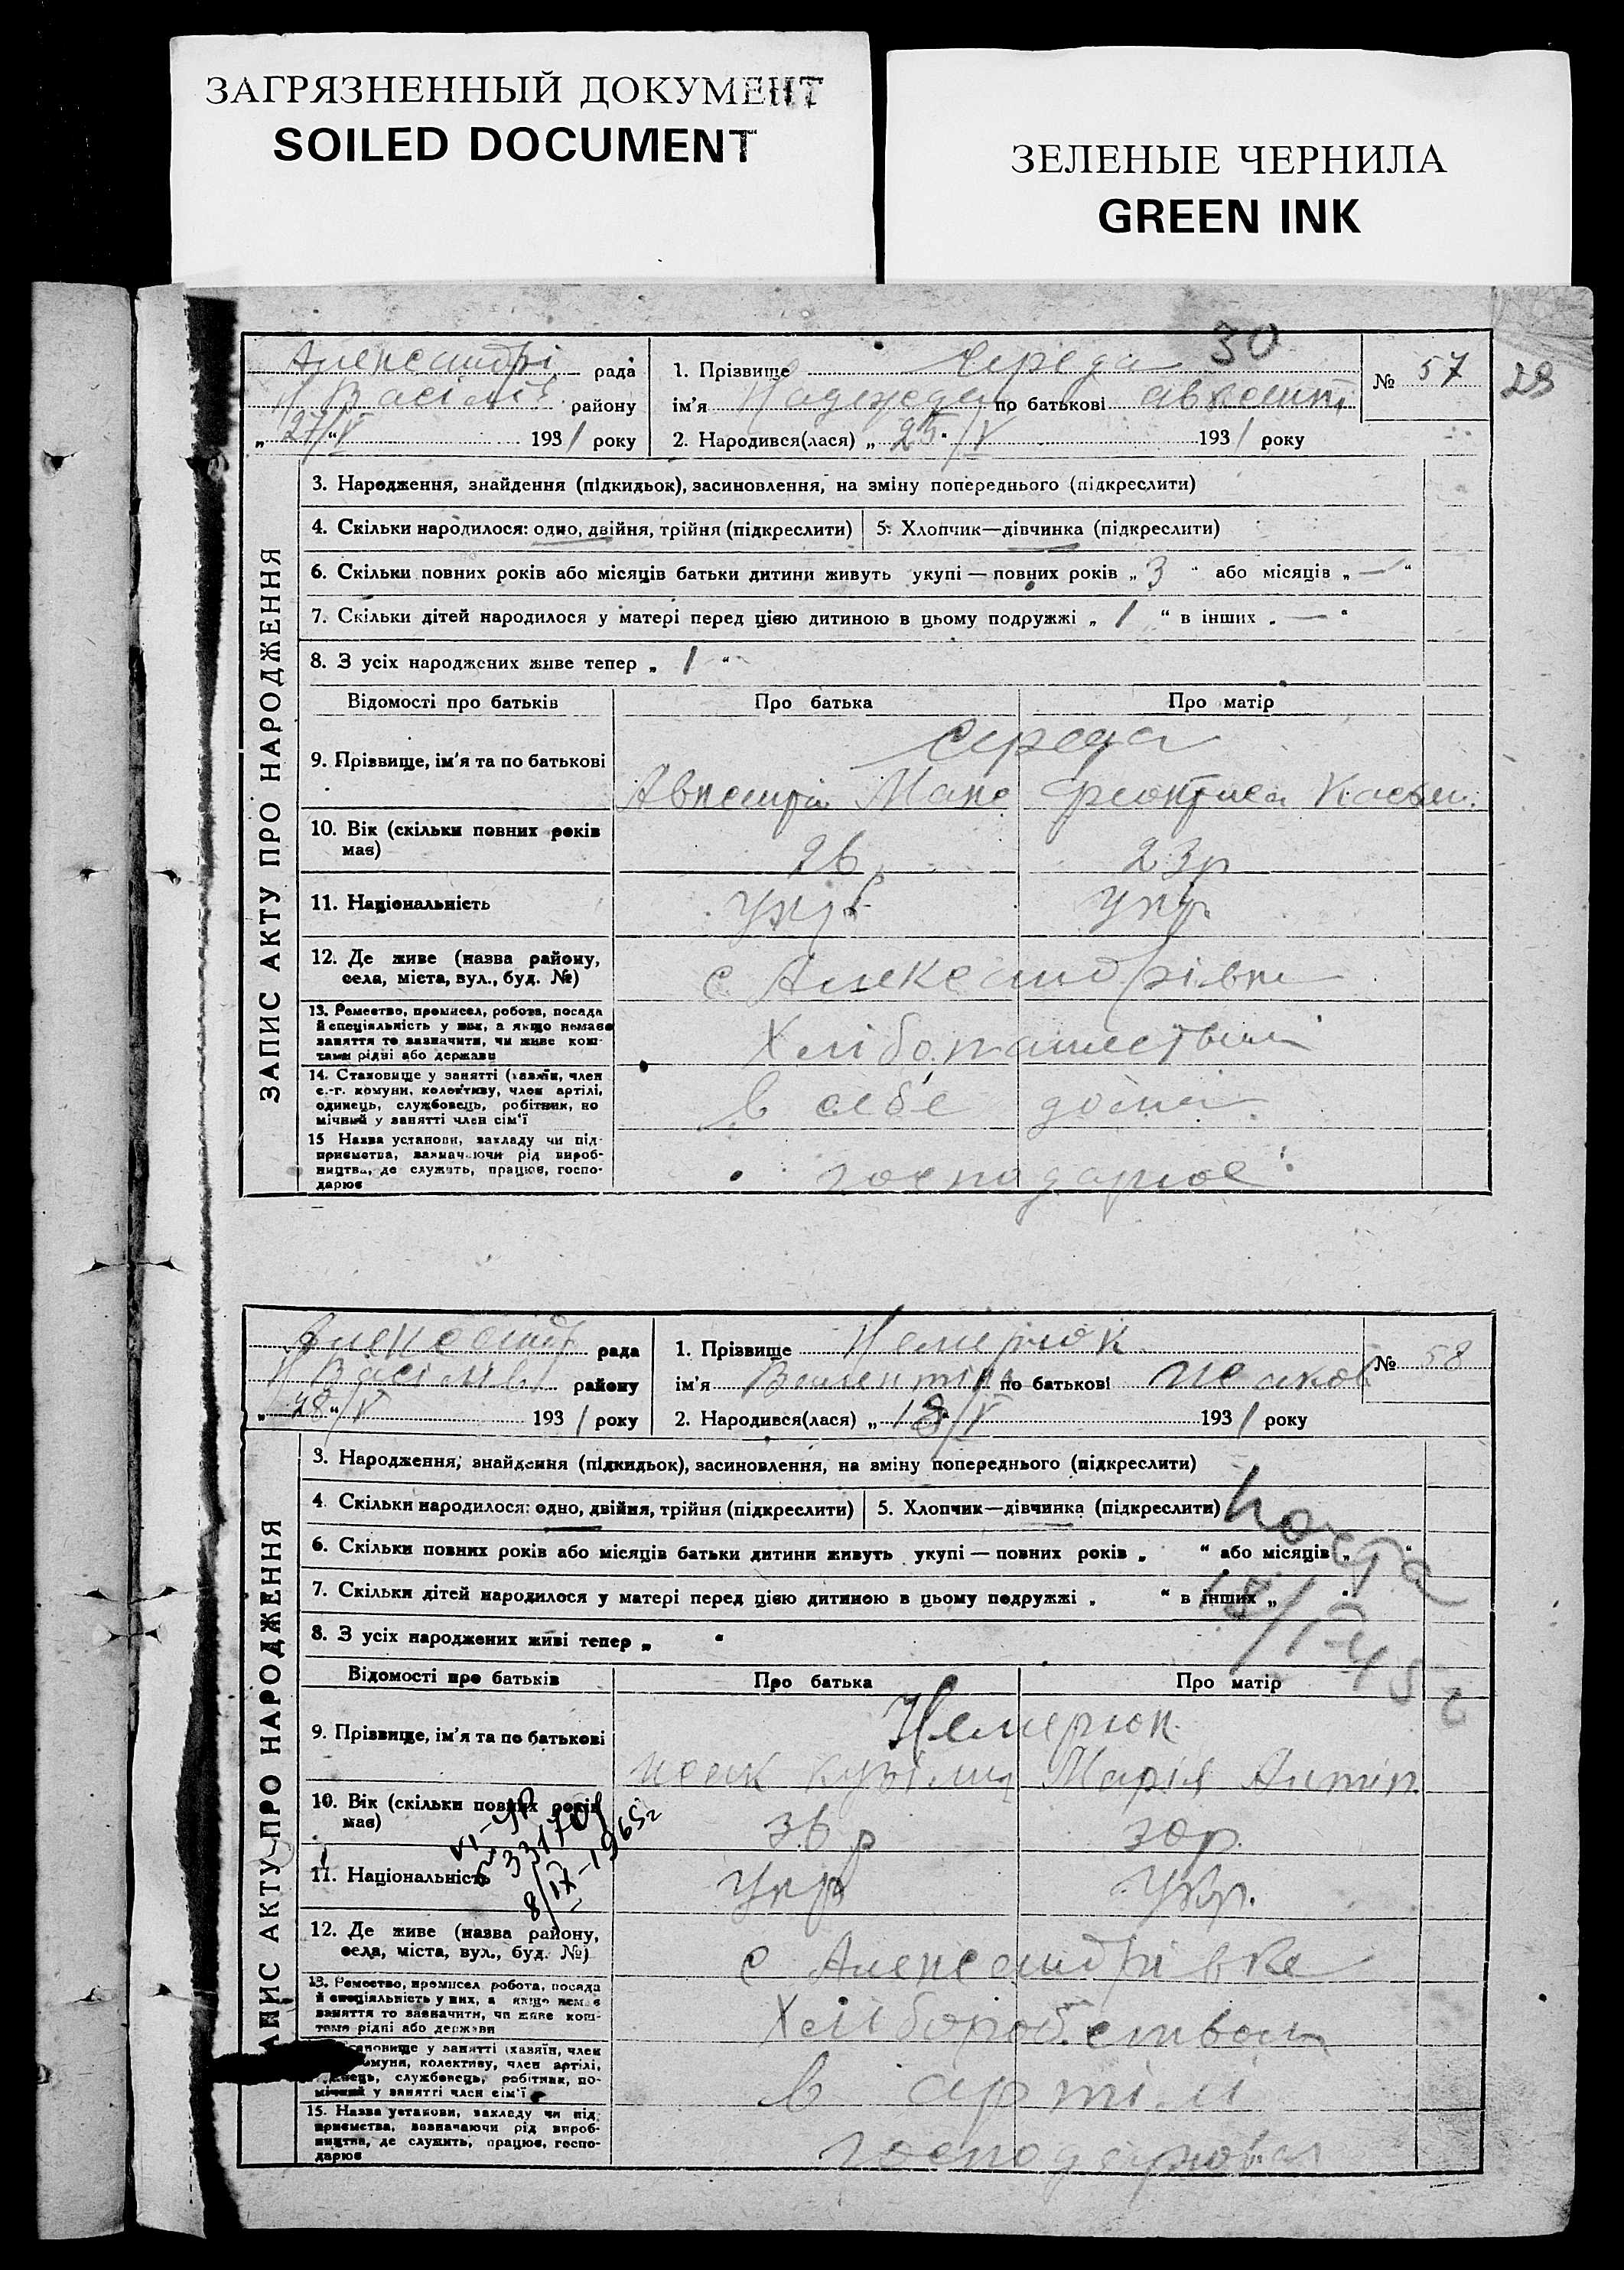 ЗАГРЯЗНЕННЫЙ ДОКУМЕНТ
SOILED DOCUMENT
ЗЕЛЕНЫЕ ЧЕРНИЛА
GREEN INK
30
29
рада
району
27/V 1931 року
1. Прізвище Середа
ім'я Надежда по батькові Авксент
2. Народився(лася) „ 25 /V 1931 року
№ 57
ЗАПИС АКТУ ПРО НАРОДЖЕННЯ
3. Народження, знайдення (підкидьок), засиновлення, на зміну попереднього (підкреслити)
4. Скільки народилося: одно, двійня, трійня (підкреслити) 5. Хлопчик—дівчинка (підкреслити)
6. Скільки повних років або місяців батьки дитини живуть укупі — повних років „ 3 “ або місяців „ — “
7. Скільки дітей народилося у матері перед цією дитиною в цьому подружжі „ 1 “ в інших „ — “
8. З усіх народжених живе тепер „ 1 “
Відомості про батьків Про батька Про матір
9. Прізвище, ім'я та по батькові
Середа
10. Вік (скільки повних років
має)
26 23 р
11. Національність
Укр Укр.
12. Де живе (назва району,
села, міста, вул., буд. №)
с
13. Ремество, промисел, робота, посада
й спеціяльність у них, а якщо немає
заняття то зазначити, чи живе кош-
тами рідні або держави
14. Становище у занятті (хазяїн, член
с.-г. комуни, колективу, член артілі,
одинець, службовець, робітник, по
мічний у занятті член сім'ї
в себе дома
15 Назва установи, закладу чи під-
приємства, зазначаючи рід вироб-
ництва, де служить, працює, госпо-
дарює
господарює
рада
району
„ 28 “/V 1931 року
1. Прізвище Немерюк
ім'я Валентіна по батькові Исаков
2. Народився(лася) „ 18/V 1931 року
№ 58
АПИС АКТУ ПРО НАРОДЖЕННЯ
3. Народження, знайдення (підкидьок), засиновлення, на зміну попереднього (підкреслити)
4. Скільки народилося: одно, двійня, трійня (підкреслити) 5. Хлопчик—дівчинка (підкреслити)
6. Скільки повних років або місяців батьки дитини живуть укупі — повних років „ “ або місяців „ “
7. Скільки дітей народилося у матері перед цією дитиною в цьому подружжі „ “ в інших „ “
8. З усіх народжених живі тепер „ “
Відомості про батьків Про батька Про матір
9. Прізвище, ім'я та по батькові
Немерюк
Марія Антип
10. Вік (скільки повних років
має)
36 р 30 р.
VI-УР
№ 331701
8/IX-1965г
11. Національність
Укр Укр.
12. Де живе (назва району,
села, міста, вул., буд. №)
с
13. Ремество, промисел робота, посада
й спеціяльність у них, а якщо немає
заняття то зазначити, чи живе кош-
тами рідні або держави
Хліборобством
становище у занятті (хазяїн, член
комуни, колективу, член артілі,
одинець, службовець, робітник, по-
мічний у занятті член сім'ї
в артілі
15. Назва установи, закладу чи під-
приємства, зазначаючи рід вироб-
ництва, де служить, працює, госпо-
дарює